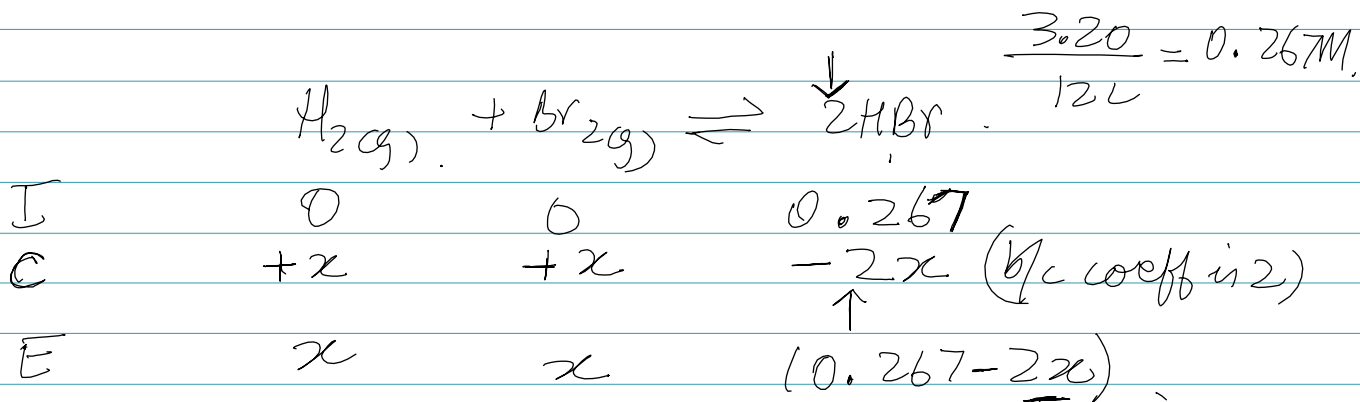 3.20 / 12L = 0.267M.
↓
H2(g). + Br2(g) ⇌ 2HBr.
I 0 0 0.267
C +x +x -2x (b/c coeff is 2)
↑
E x x (0.267-2x)